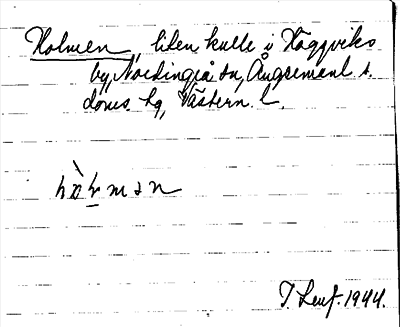 Holmen, liten kulle i Häggviks
by, Nordingrå sn, Ångermanl. s.
doms. hg, Västern. l.
T. Leuf. 1944.